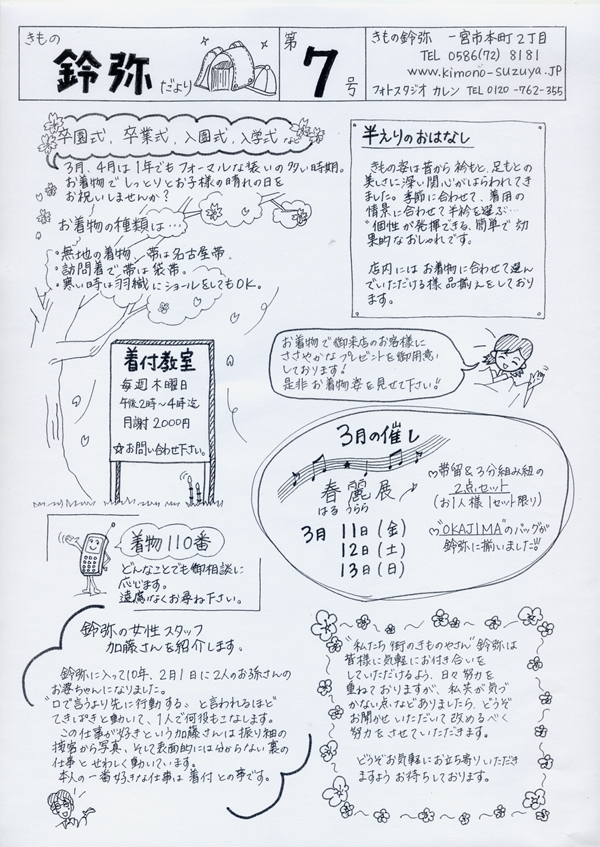 きもの
鈴弥 だより
第
7
号
きもの鈴弥 一宮市本町2丁目
TEL 0586(72) 8181
www.kimono-suzuya.JP
フォトスタジオ カレン TEL 0120-762-355
卒園式, 卒業式, 入園式, 入学式 など
3月, 4月は1年でもフォーマルな装いの多い時期。
お着物でしっとりとお子様の晴れの日を
お祝いしませんか?
お着物の種類は…
・無地の着物、帯は名古屋帯.
・訪問着で帯は袋帯。
・寒い時は羽織にショールをしてもOK。
半えりのおはなし
きもの姿は昔から衿もと, 足もとの
美しさに深い関心がはらわれてき
ました。季節に合わせて、着用の
情景に合わせて半衿を選ぶ…
"個性"が発揮できる, 簡単で効
果的なおしゃれです。
店内にはお着物に合わせて選ん
でいただける様品揃えをしており
ます。
着付教室
毎週木曜日
午後2時〜4時迄
月謝2000円
☆お問い合わせ下さい。
お着物で御来店のお客様に
ささやかなプレゼントを御用意
しております!
是非お着物姿を見せて下さい!!
3月の催し
春麗展
はるうらら
3月 11日(金)
12日(土)
13日(日)
♡帯留&3分組み紐の
2点セット
(お1人様1セット限り)
♡"OKAJIMA"のバッグが
鈴弥に揃いました!!
着物110番
どんなことでも御相談に
応じます。
遠慮なくお尋ね下さい。
鈴弥の女性スタッフ
加藤さんを紹介します。
鈴弥に入って10年、2月1日に2人のお孫さんの
お婆ちゃんになりました。
"口で言うより先に行動する"と言われるほど
てきぱきと動いて、1人で何役もこなします。
この仕事が好きという加藤さんは振り袖の
接客から写真、そして表面的には分からない裏の
仕事とせわしく動いています。
本人の一番好きな仕事は着付との事です。
"私たち街のきものやさん"鈴弥は
皆様に気軽にお付き合いを
していただけるよう、日々努力を
重ねておりますが、私共が気づ
かない点などありましたら、どうぞ
お聞かせいただいて改めるべく
努力をさせていただきます。
どうぞお気軽にお立ち寄りいただき
ますようお待ちしております。